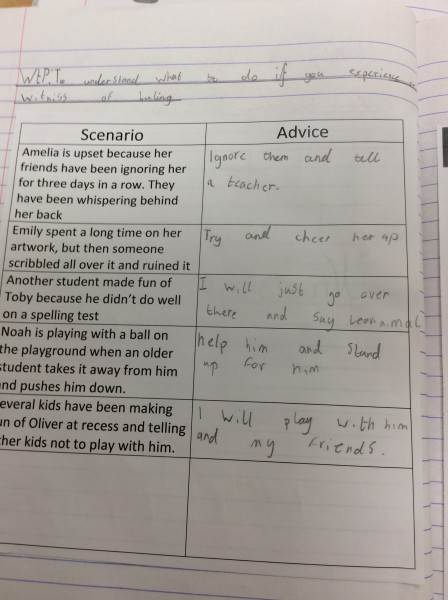 WtP: To understand what to do if you experience or
witniss of buling
Scenario
Advice
Amelia is upset because her
friends have been ignoring her
for three days in a row. They
have been whispering behind
her back
Ignore them and tell
a teacher.
Emily spent a long time on her
artwork, but then someone
scribbled all over it and ruined it
Try and cheer her up
Another student made fun of
Toby because he didn't do well
on a spelling test
I will just go over
there and say
Noah is playing with a ball on
the playground when an older
student takes it away from him
and pushes him down.
help him and stand
up for him
everal kids have been making
un of Oliver at recess and telling
ther kids not to play with him.
I will play with him
and my friends.